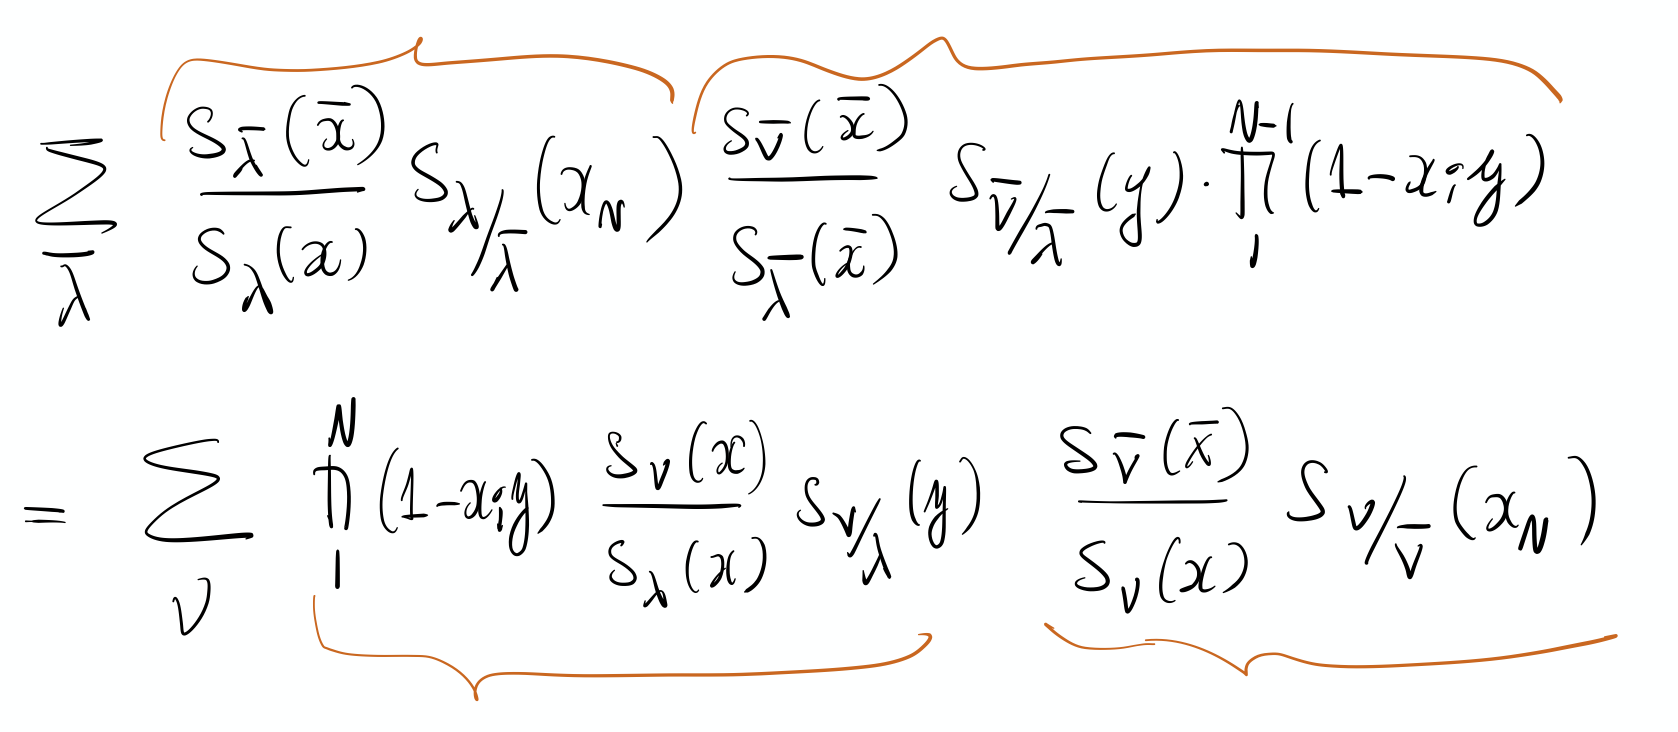 $$\sum_{\bar{\lambda}} \overbrace{\frac{S_{\bar{\lambda}}(\bar{x})}{S_{\lambda}(x)} S_{\lambda/\bar{\lambda}}(x_N)} \overbrace{\frac{S_{\bar{\nu}}(\bar{x})}{S_{\bar{\lambda}}(\bar{x})} S_{\bar{\nu}/\bar{\lambda}}(y) \cdot \prod_{1}^{N-1} (1 - x_i y)}$$
$$= \sum_{\nu} \underbrace{\prod_{1}^{N} (1 - x_i y) \frac{S_{\nu}(x)}{S_{\lambda}(x)} S_{\nu/\lambda}(y)} \underbrace{\frac{S_{\bar{\nu}}(\bar{x})}{S_{\nu}(x)} S_{\nu/\bar{\nu}}(x_N)}$$